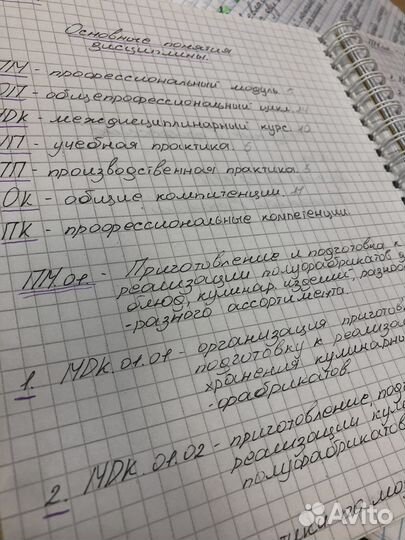 Основные понятия
дисциплины.
ПМ - профессиональный модуль 6
ОП - общепрофессиональный цикл. 11
МДК - междисциплинарный курс. 10
УП - учебная практика. 6
ПП - производственная практика. 5
ОК - общие компитенции. 11
ПК - профессиональные компетенции.
ПМ.01. - Приготовление и подготовка к
реализации полуфабрикатов д
блюд, кулинар. изделий, разноо
-разного ассортимента.
1. МДК.01.01 - организация приготов
подготовку к реализац
хранения кулинарны
-фабрикатов.
2. МДК.01.02 - приготовление, под
реализации кули
полуфабрикатов
Avito